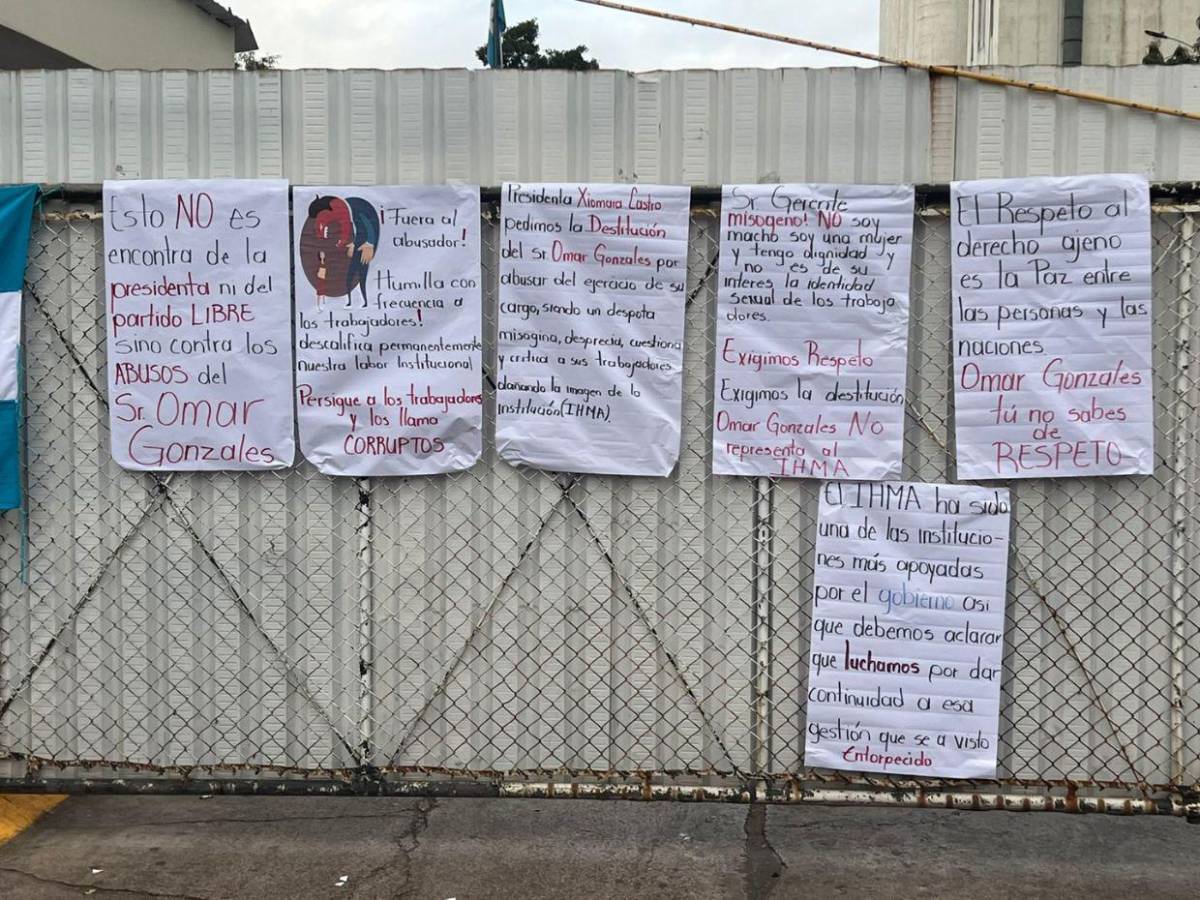 Esto NO es
encontra de la
presidenta ni del
partido LIBRE
sino contra los
ABUSOS del
Sr. Omar
Gonzales
¡Fuera al
abusador!
Humilla con
frecuencia a
los trabajadores!
descalifica permanentemente
nuestra labor Institucional
Persigue a los trabajadores
y los llama
CORRUPTOS
Presidenta Xiomara Castro
pedimos la Destitución
del Sr. Omar Gonzales por
abusar del ejercicio de su
cargo, siendo un despota
misogina, desprecia, cuestiona
y critica a sus trabajadores
dañando la imagen de la
institución (IHMA).
Sr. Gerente
misogeno! NO soy
macho soy una mujer
y tengo dignidad y
no es de su
interes la identidad
sexual de los trabaja
dores.
Exigimos Respeto
Exigimos la destitución
Omar Gonzales No
representa al
IHMA
El Respeto al
derecho ajeno
es la Paz entre
las personas y las
naciones.
Omar Gonzales
tú no sabes
de
RESPETO-
El IHMA ha sido
una de las institucio-
nes más apoyadas
por el gobierno asi
que debemos aclarar
que luchamos por dar
continuidad a esa
gestión que se a visto
Entorpecido